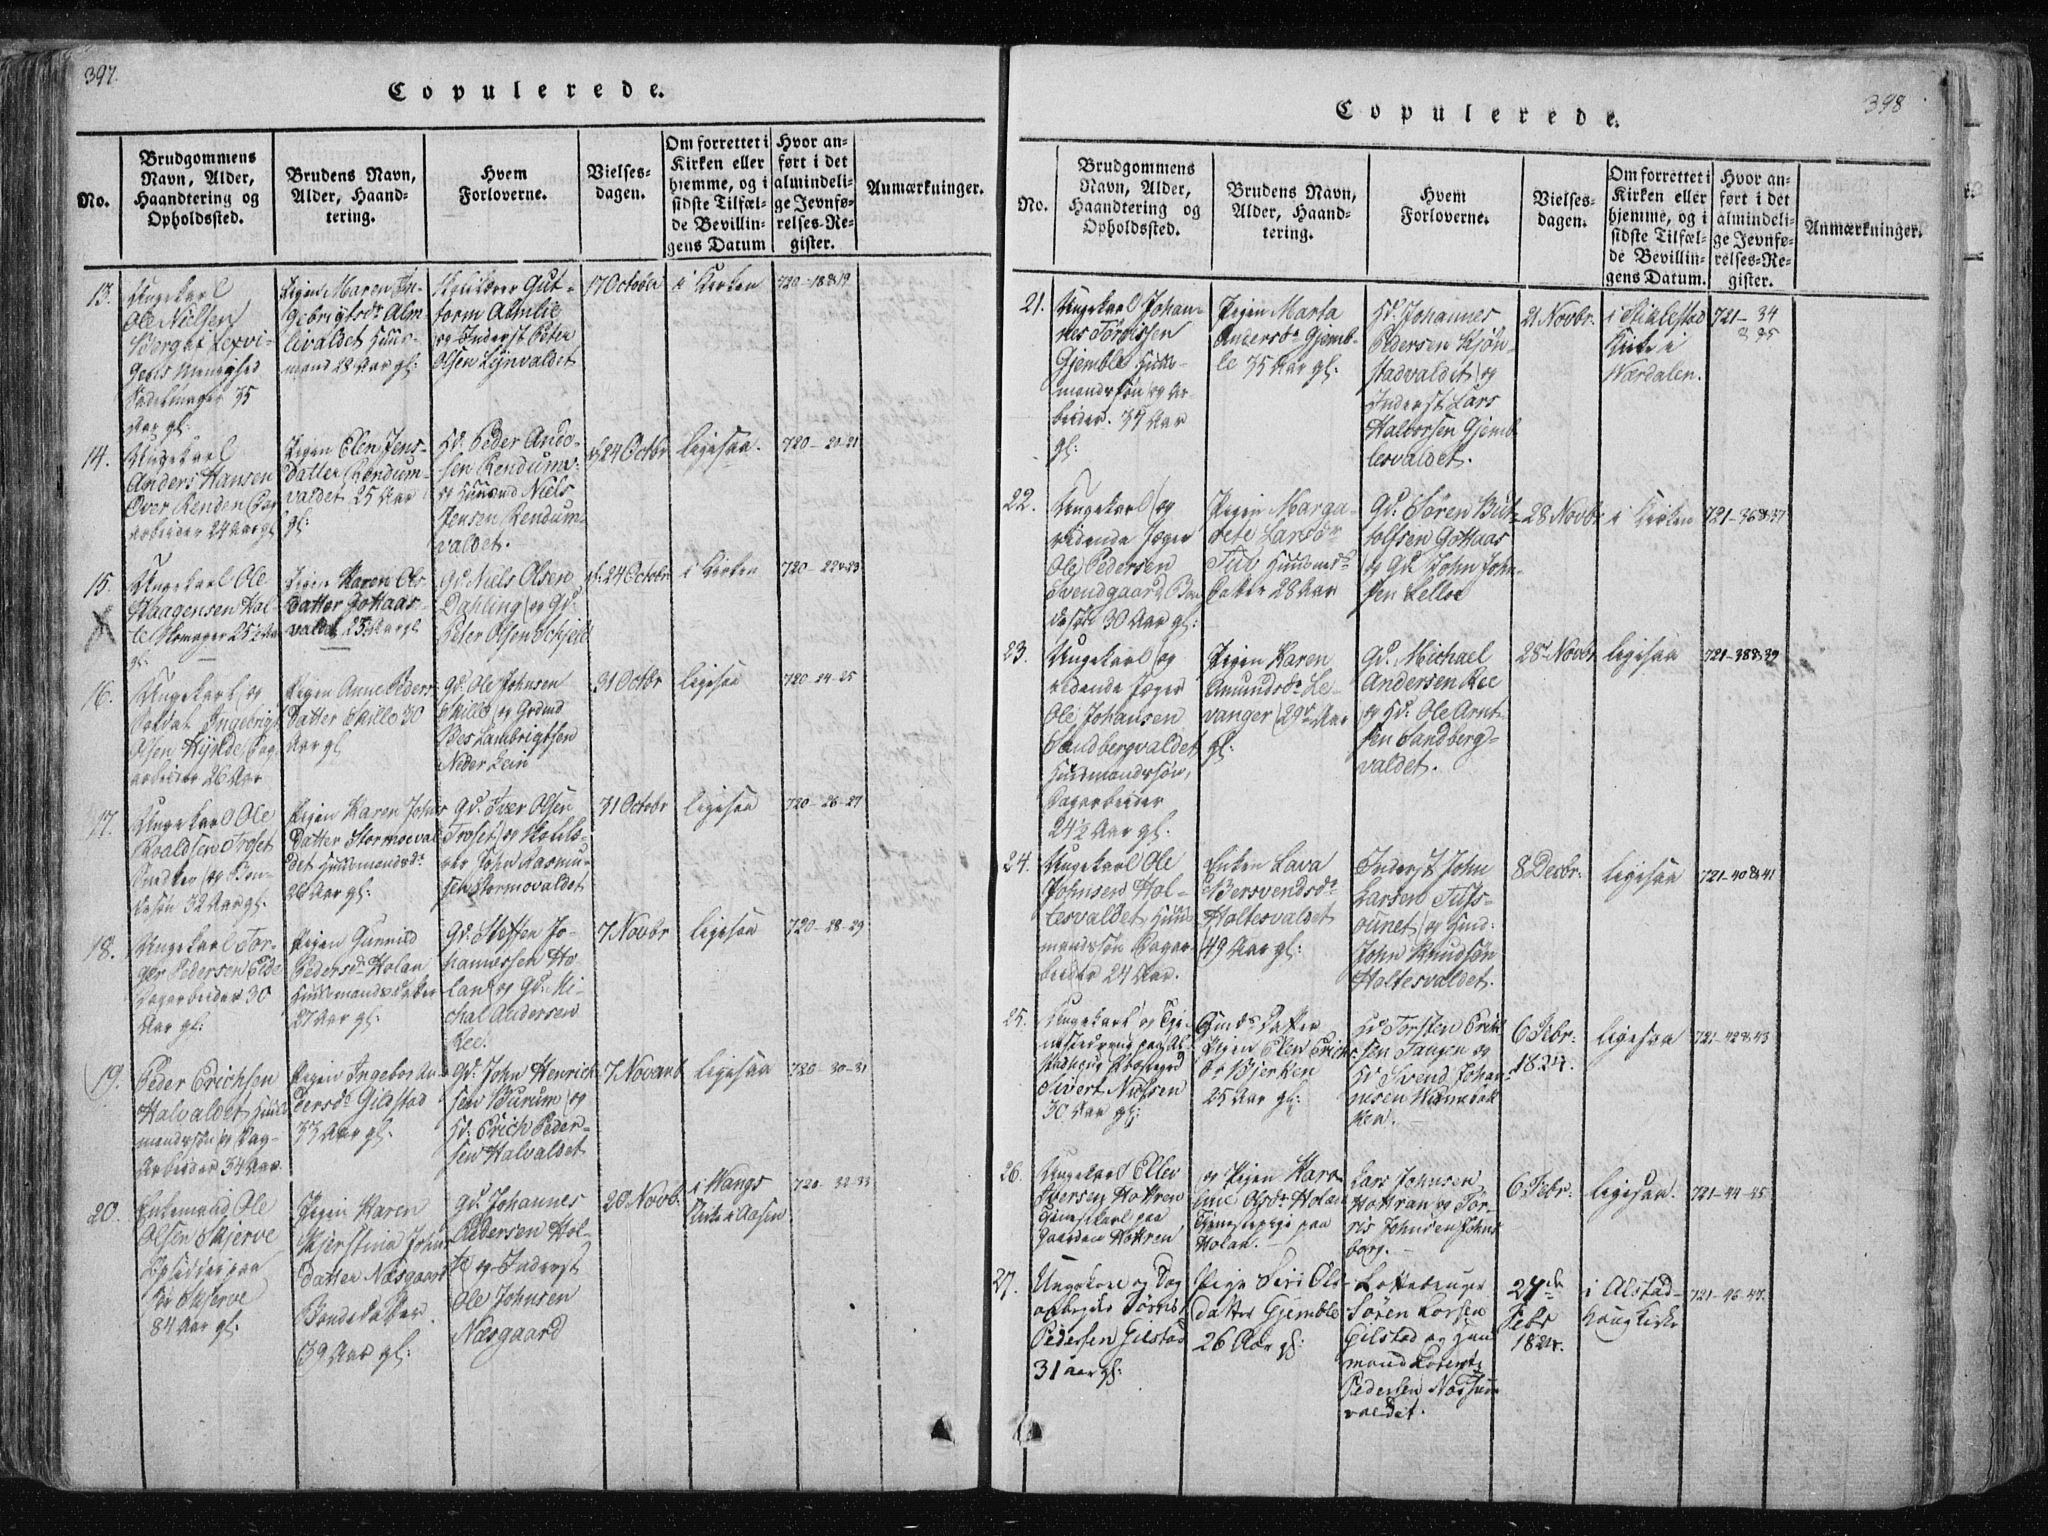 397.
Copulerede.
No.
Brudgommens
Navn, Alder,
Haandtering og
Opholdssted.
Brudens Navn,
Alder, Haand-
tering.
Hvem
Forloverne.
Vielses-
dagen.
Om forrettet i
Kirken eller
hjemme, og i
sidste Tilfæl-
de Bevillin-
gens Datum
Hvor an-
ført i det
almindeli-
ge Jevnfø-
relses-Re-
gister.
Anmærkninger.
13.
Ungekarl
Ole Nielsen
Berget Lexvi-
gens Menighed
35
Aar gl:
Pigen Maren In-
gebrigtsdr Alm-
levaldet Huus-
mand 28 Aar gl:
Skolelærer Gut-
torm Almlie
og Inderst Peter
Olsen Lynvaldet
17 Octobr
i Kirken
720-18&19
14.
Ungekarl
Anders Hansen
Over Renden Dag
arbeider 24 Aar gl
Pigen Elen Jens-
datter Rendum-
valdet 25 Aar
gl:
Hd. Peder Ando-
sen Rendums:
og Huusmd Niels
Jensen Rendum-
valdet.
d. 24 Octobr
ligesaa.
720-20-21
15.
Ungekarl Ole
Haagensen Hal-
te Skomager 25½ Aar
gl.
Pigen Karen Ols-
datter Gottaas-
valdt 25½ Aar gl
Gd. Niels Olsen
Dahling og Gd.
Peter Olsen Schjeld
d. 24 Octobr
i Kirken
720-22&23
16.
Ungekarl og
Soldat Ingebrigt
Olsen Hynlde Dag
arbeider 26 Aar
Pigen Anne Peders
datter Skillo 30
Aar gl
Gd. Ole Johnsen
Skillo og Grdmd
Lambrigtsen
Neder Lein
31 Octbr
ligesaa
720-24-25
17.
Ungekarl Ole
Roaldsen Troset
Snedker og Bon-
desøn 32 Aar gl.
Pigen Karen Johns
datter Stormoeval
det Huusmandsdr
26 Aar gl:
Gd. Iver Olsen
Troset og Skoehl-
er John Rasmu-
sen Stormovaldet
31 Octobr
ligesaa
720-26-27
18.
Ungekarl Tor-
ger Pedersen Elde
Dagarbeider 30
Aar gl:
Pigen Gunnild
Pedersdr Holan
Huusmandsdatter
27 Aar gl:
Gd. Steffen Jo-
hannessen Ho-
lan og Gd. Mi-
chal Andersen
Ree.
7 Novbr
ligesaa
720-28-29
19.
Peder Erichsen
Halvaldet Huus
mandssøn og Dag-
arbeider 34 Aar
Pigen Ingebor An-
dersdr Gilstad
33 Aar gl.
Gd. John Henrich
sen Burum og
Hd. Erich Peder-
sen Halvaldet
7 Novanb
ligesaa
720 30-31
20.
Enkemand Ole
Olsen Skjerve
Opsidder paa
Skjerve
84 Aar gl:
Pigen Karen
Kjerstina Johns
datter Næsgaard
Bondedatter.
39 Aar gl:
Gd. Johannes
Pedersen Hol-
te og Inderst
Ole Johnsen
Næsgaard
20 Novb.
i Wangs
Kirke i Aasen
720-32-33
398
Copulerede.
No.
Brudgommens
Navn, Alder,
Haandtering og
Opholdssted.
Brudens Navn,
Alder, Haand-
tering.
Hvem
Forloverne.
Vielses-
dagen.
Om forrettet i
Kirken eller
hjemme, og i
sidste Tilfæl-
de Bevillin-
gens Datum.
Hvor an-
ført i det
almindeli-
ge Jevnfø-
relses-Re-
gister.
Anmærkninger.
21.
Ungekarl Johan-
nes Tørrissen
Gjemble Huus-
mandssøn og Ar-
beider. 34 Aar
gl:
Pigen Marta
Andersdr Gjemb-
le 35 Aar gl:
Hd. Johannes
Pedersen Kjøn-
stadvaldet og
Inderst Lars
Haldorsen Gjemb-
lesvaldet.
21 Novbr:
i Stiklestad
Kirke i
Værdalen.
721-34
& 35
22.
Ungekarl og
ridende Jæger
Ole Pedersen
Svendgaard Bon
desøn 30 Aar gl:
Pigen Marga-
rete Larsdr
Tub Huusmds
datter 28 Aar
Gd. Søren But-
tolfsen Gottaas
og Gd. John John-
sen Lelloe
28 Novbr
i Kirken
721-36&37
23.
Ungekarl og
ridende Jæger
Ole Johansen
Sandbergvaldet
Huusmandssøn,
Dagarbeider
24½ Aar gl.
Pigen Karen
Amundsdr Le-
vanger 29 Aar
gl:
Gd. Michael
Andersen Ree
og Hd. Ole Arnt-
sen Sandberg-
valdet.
28 Novbr
ligesaa
721-38&39
24.
Ungekarl Ole
Johnsen Hal-
tesvaldet Huus
mandssøn Dagar-
beider 24 Aar.
Enken Lava
Bersvendsdr
Holtesvaldet
49 Aar gl:
Inderst John
Larsen Tufs-
ounet og Huusmd:
John Knudsøn
Holtesvaldet.
8 Decbr:
ligesaa
721-40&41
25.
Ungekarl og Tje-
Sivert Nielsen
30 Aar gl:
Gmds datter
Pigen Elen Erichs-
dr Bjerken
25 Aar gl:
Hd Torsten Erich
sen Tangen og
Hd Svend Johan-
nesen
6 Febr:
1824.
ligesaa
721-42&43
26.
Ungekarl Ellev
Iversen Hottren
Tjenestkarl paa
Gaarden Hottren
og Pigen Karo-
line Olsdr Holan
Tjenestepige paa
Holan.
Lars Johnsen
Hottran og Tør-
ris Johnsen Johns
borg.
6 Febr:
ligesaa.
721-44-45
27.
Ungekarl og Dag
arbejder Tørris
Pedersen Gilstad
31 aar gl:
Pige Siri Ols-
datter Gjemble
26 Aar gl:
Søren Larsen
Gilstad og Huus
mand Lorents
Pedersen Norsum
valdet.
24de
Febr
1824.
i Alstad-
houg Kirke
721-46-47.